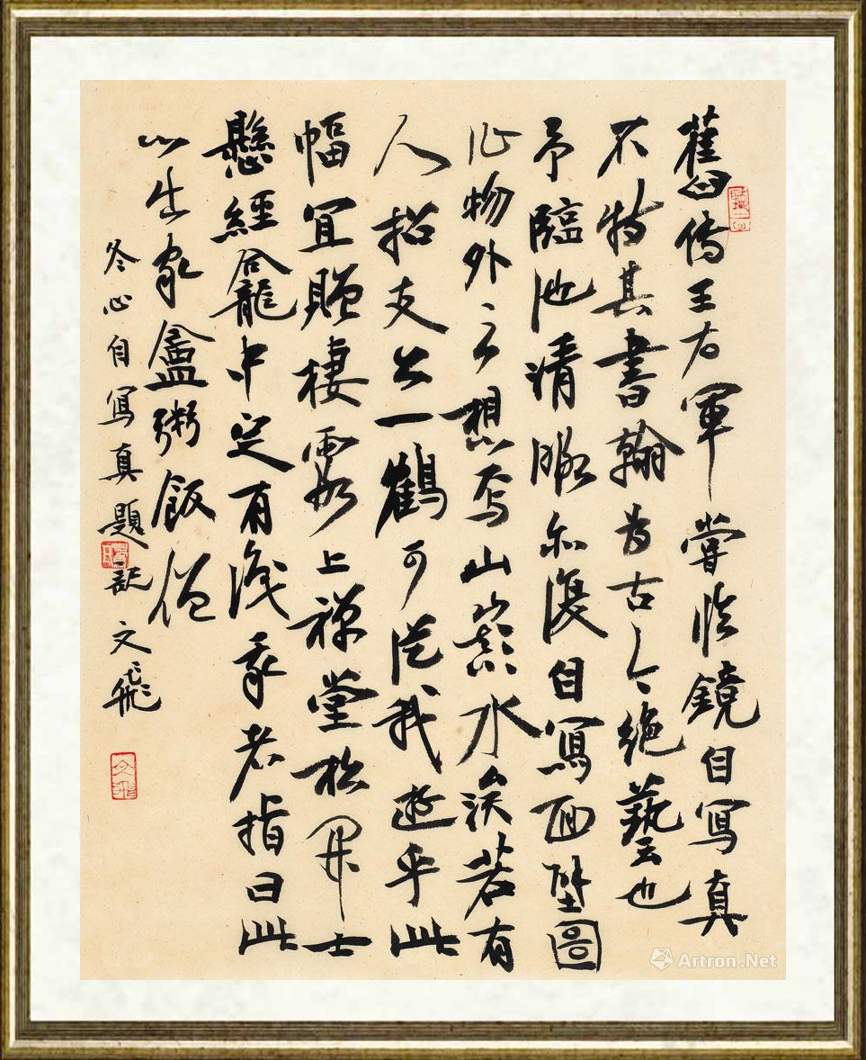 舊傳王右軍嘗臨鏡自寫真
不特其書翰為古今絕藝也
予臨池清暇亦復自寫面壁圖
作物外之想焉山水涘若有
人招支公一鶴可從我遊乎此
幅宜贈棲霞上禪堂松開士
懸經龕中定有識我者指曰此
心出家盦粥飯僧
冬心自寫真題記 文飛
文飛
Artron.Net